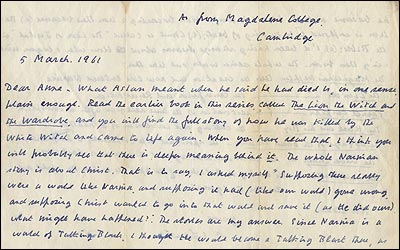 As from Magdalene College
Cambridge
5 March 1961
Dear Anne - What Aslan meant when he said he had died is, in one sense,
plain enough. Read the earlier book in this series called The Lion the Witch and
the Wardrobe and you will find the full story of how he was killed by the
White Witch and came to life again. When you have read that, I think you
will probably see that there is deeper meaning behind it. The whole Narnian
story is about Christ. That is to say, I asked myself "Supposing there really
were a world like Narnia and supposing it had (like our world) gone wrong
and supposing Christ wanted to go into that world and save it (as He did ours)
what might have happened?" The stories are my answer. Since Narnia is a
world of Talking Beasts, I thought He would become a Talking Beast there as